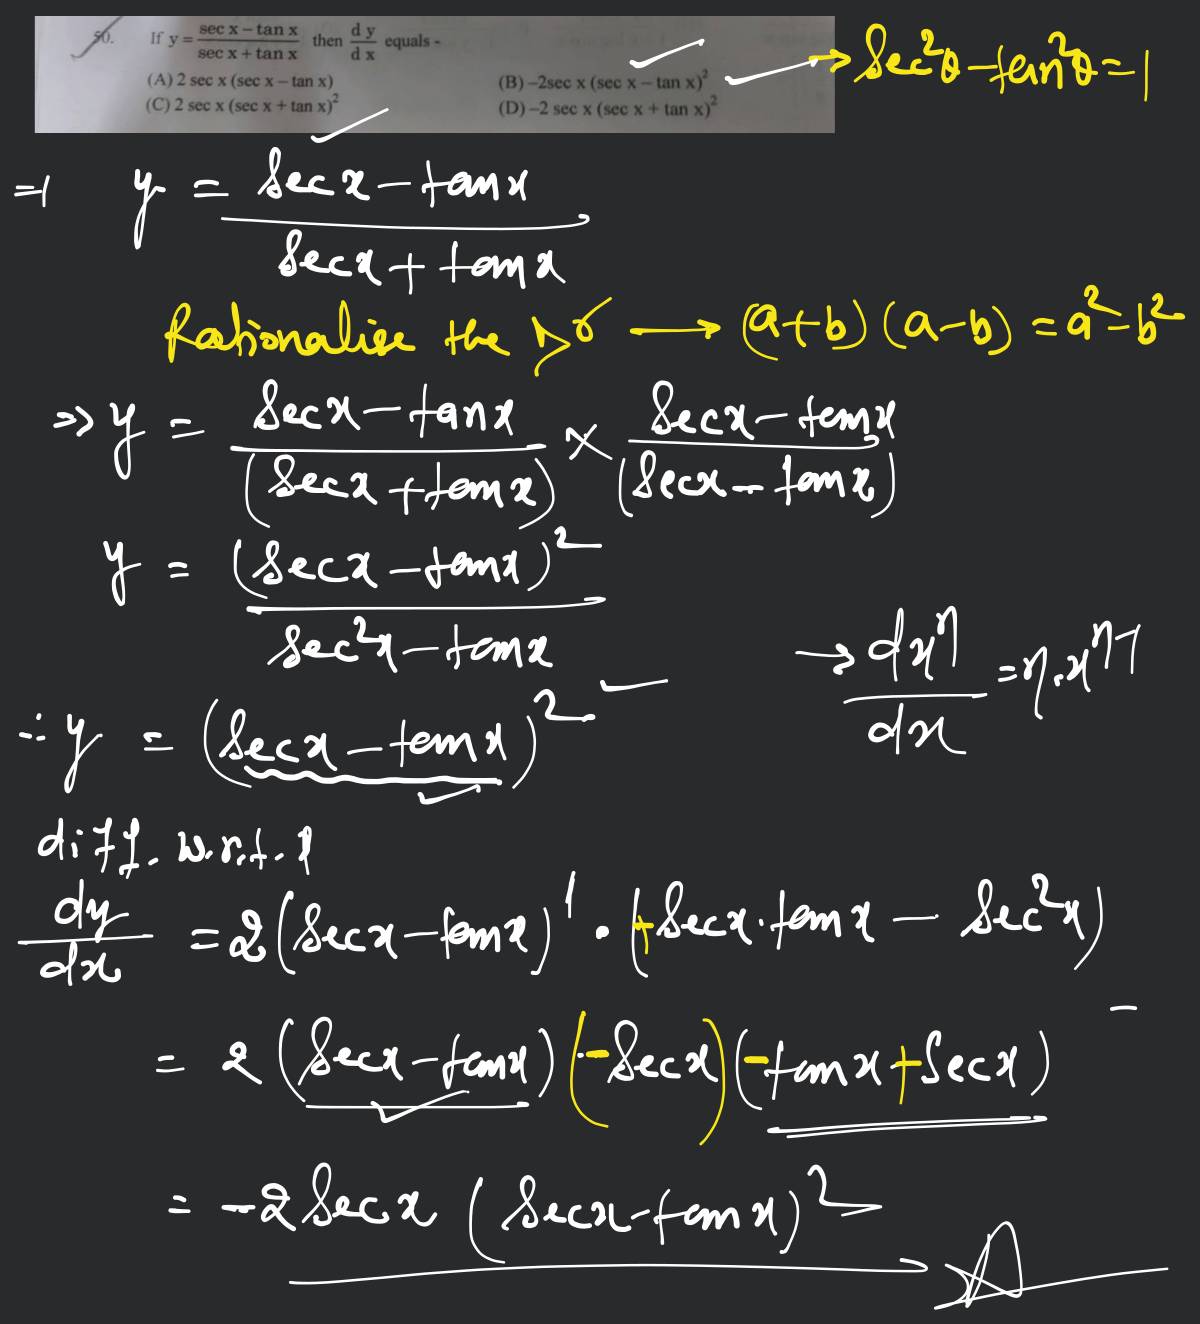 50. If y = (sec x – tan x)/(sec x + tan x) then dy/dx equals -
(A) 2 sec x (sec x – tan x)
(B) –2sec x (sec x – tan x)²
(C) 2 sec x (sec x + tan x)²
(D) –2 sec x (sec x + tan x)²
→ Sec²θ – tan²θ = 1
⇒ y = (Sec x – tan x)/(Sec x + tan x)
Rationalise the Dr → (a+b)(a–b) = a²–b²
⇒ y = (Sec x – tan x)/(Sec x + tan x) × (Sec x – tan x)/(Sec x – tan x)
y = (Sec x – tan x)²/(Sec²x – tan x)
→ dxⁿ/dx = n.xⁿ⁻¹
∴ y = (Sec x – tan x)²
diff. w.r.t. x
dy/dx = 2(Sec x – tan x)¹ · (+Sec x · tan x – Sec²x)
= 2 (Sec x – tan x) (–Sec x) (–tan x + Sec x)
= –2 Sec x (Sec x – tan x)²